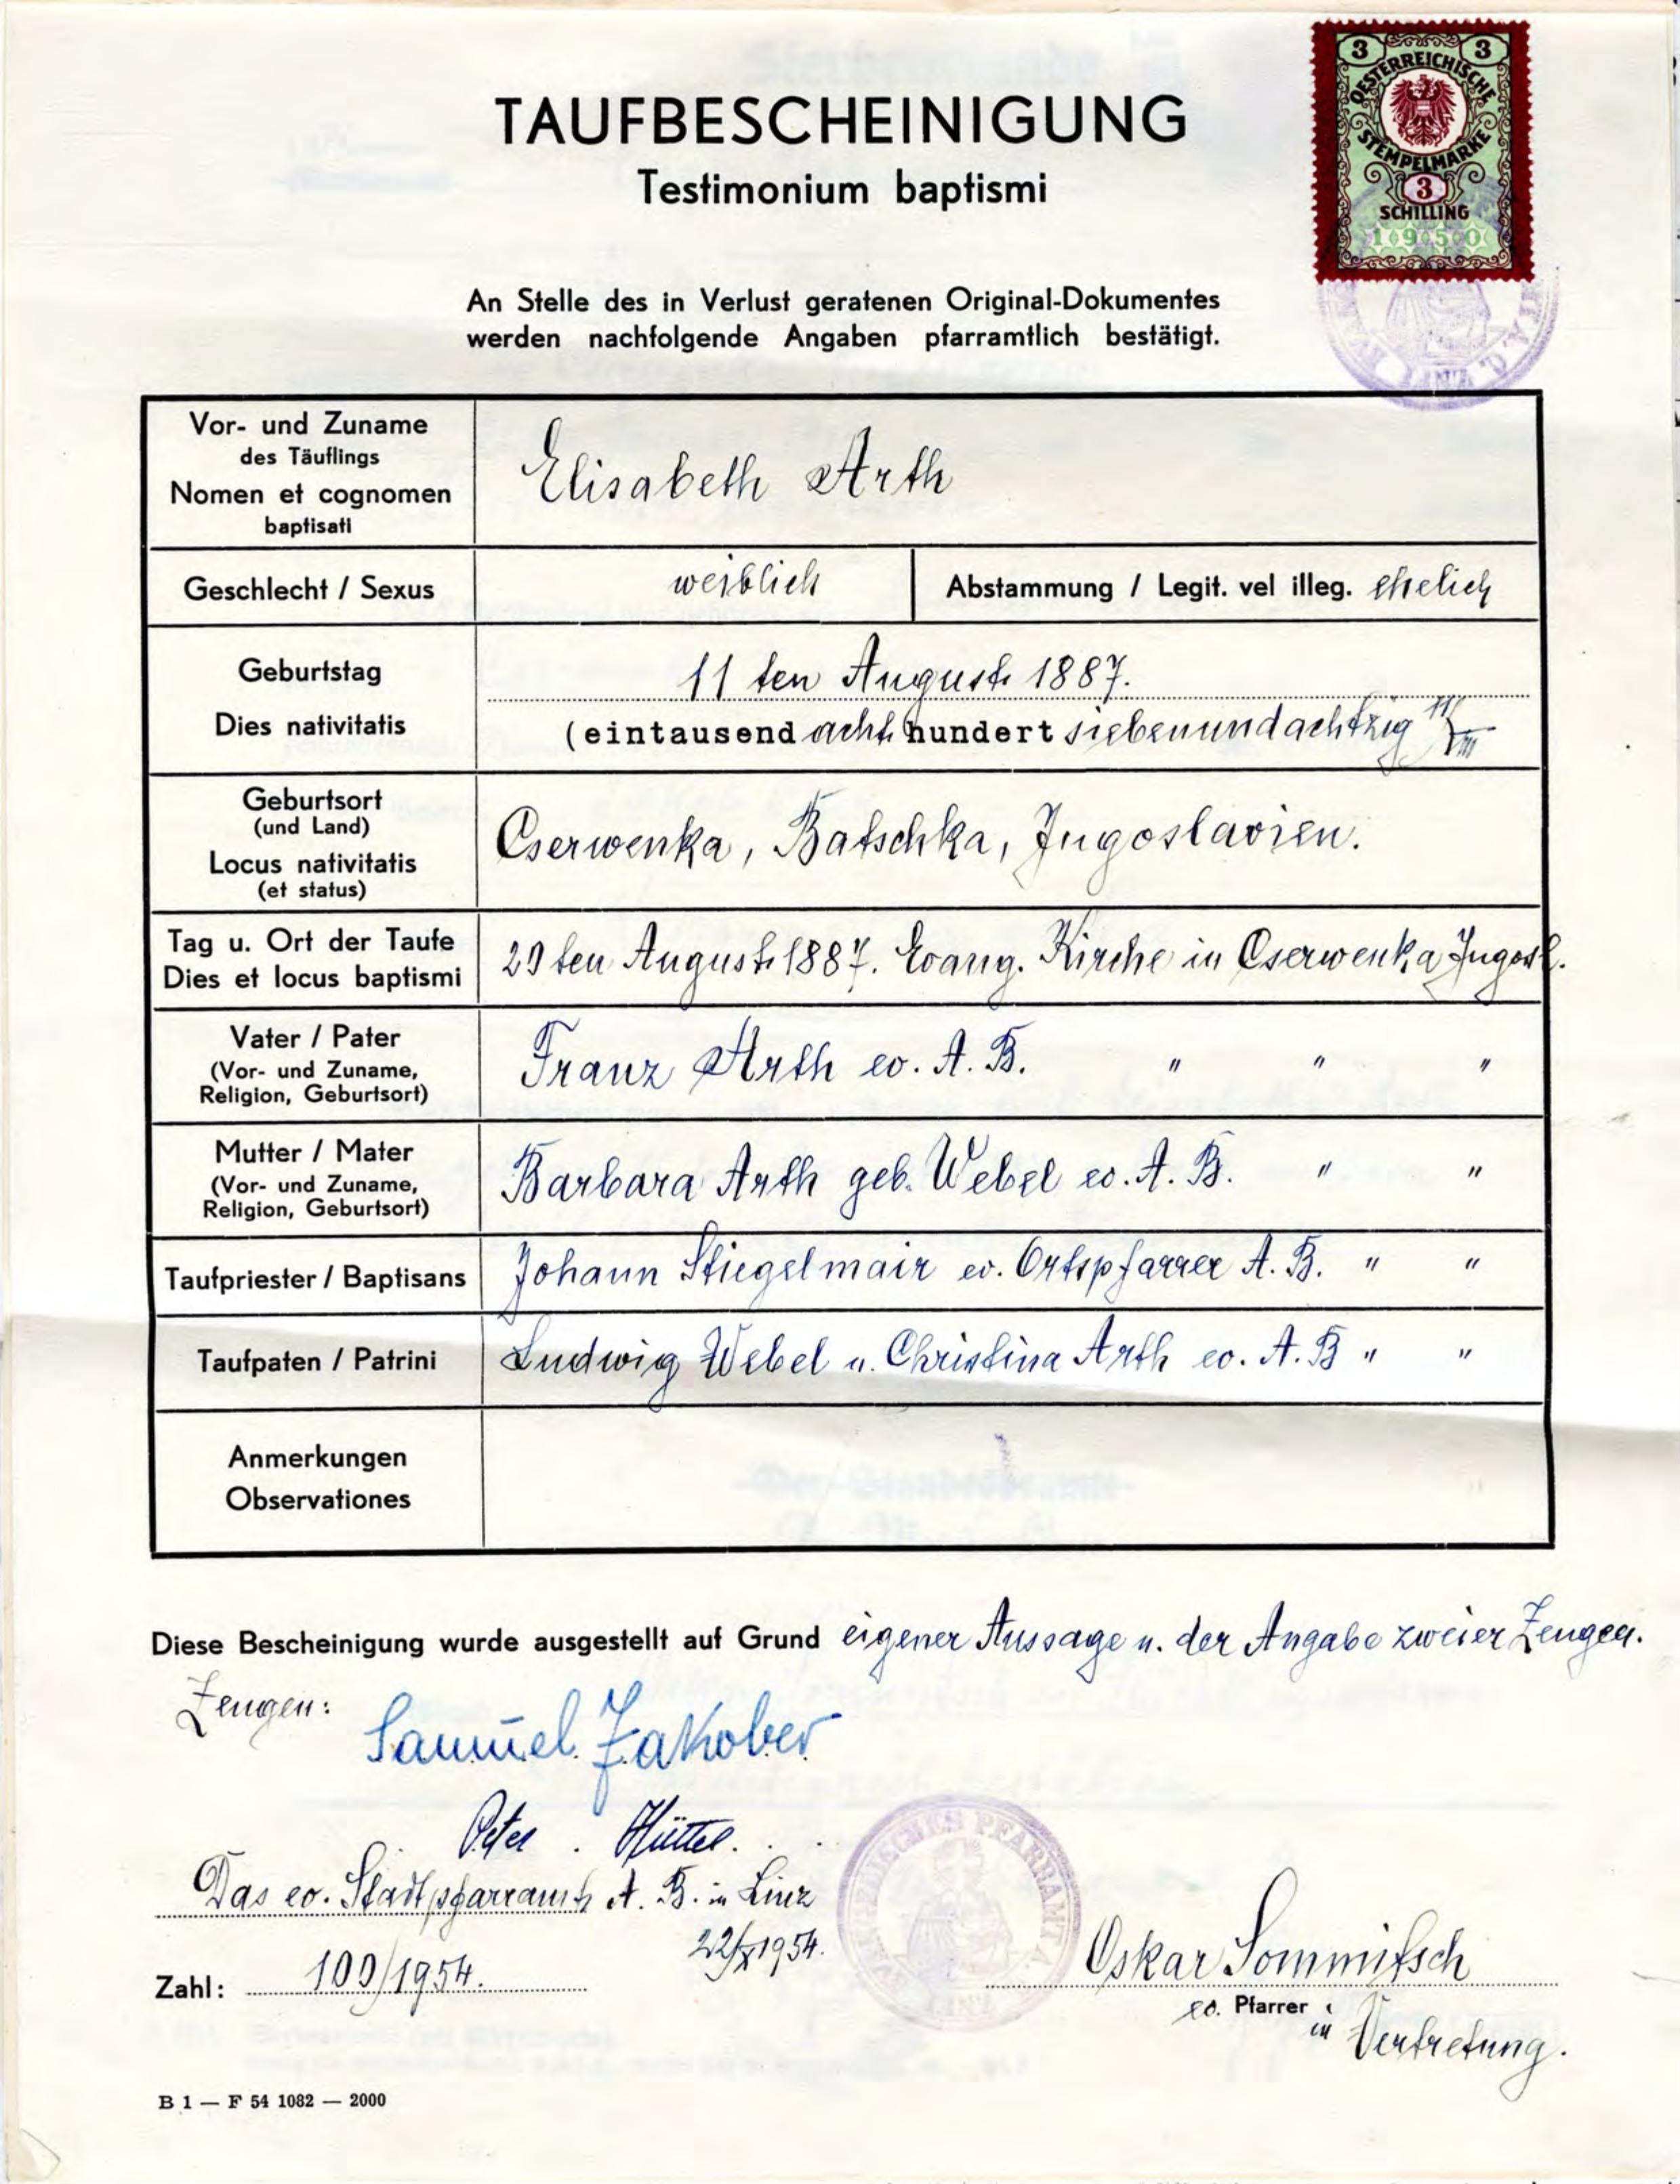 3 3
OESTERREICHISCHE
STEMPELMARKE
3
SCHILLING
1950
TAUFBESCHEINIGUNG
Testimonium baptismi
An Stelle des in Verlust geratenen Original-Dokumentes
werden nachfolgende Angaben pfarramtlich bestätigt.
Vor- und Zuname
des Täuflings
Nomen et cognomen
baptisati
Elisabeth Arth
Geschlecht / Sexus weiblich Abstammung / Legit. vel illeg. ehelich
Geburtstag
Dies nativitatis
11 ten August 1887.
(eintausend acht hundert siebenundachtzig
Geburtsort
(und Land)
Locus nativitatis
(et status)
Cserwenka, Batschka, Jugoslavien.
Tag u. Ort der Taufe
Dies et locus baptismi
29 ten August 1887. Evang. Kirche in Cserwenka Jugosl.
Vater / Pater
(Vor- und Zuname,
Religion, Geburtsort)
Franz Arth ev. A. B. " " "
Mutter / Mater
(Vor- und Zuname,
Religion, Geburtsort)
Barbara Arth geb. Webel ev. A. B. " "
Taufpriester / Baptisans Johann Stiegelmair ev. Ortspfarrer A. B. " "
Taufpaten / Patrini Ludwig Webel u. Christina Arth ev. A. B " "
Anmerkungen
Observationes
Diese Bescheinigung wurde ausgestellt auf Grund eigener Aussage u. der Angabe zweier Zeugen.
Zeugen:
Samuel Jakober
Peter Hüttel.
Das ev. Stadtpfarramt A. B. in Linz
22/X 1954.
Zahl: 109/1954.
EVANGELISCHES PFARRAMT A.
LINZ
Oskar Sommitsch
ev. Pfarrer in Vertretung.
B 1 — F 54 1082 — 2000